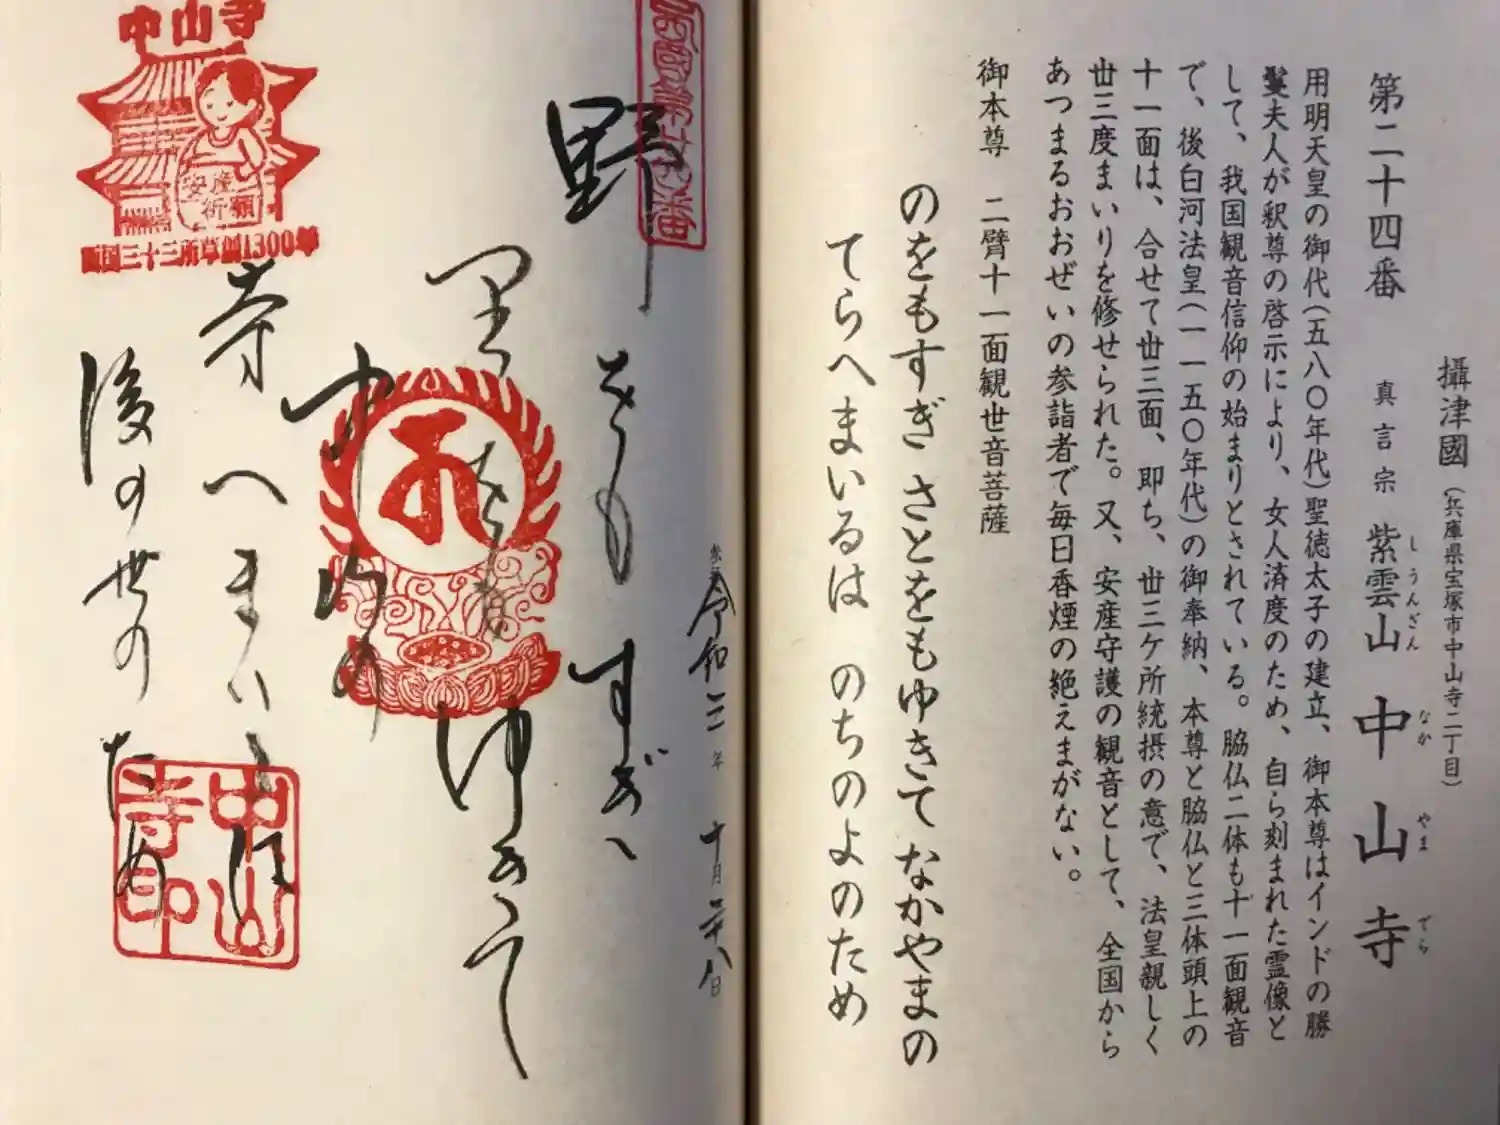 攝津國(兵庫県宝塚市中山寺二丁目)
第二十四番 真言宗 紫雲山 中山寺
しうんざん なかやまでら
用明天皇の御代(五八〇年代)聖徳太子の建立、御本尊はインドの勝
鬘夫人が釈尊の啓示により、女人済度のため、自ら刻まれた霊像と
して、我国観音信仰の始まりとされている。脇仏二体も十一面観音
で、後白河法皇(一一五〇年代)の御奉納、本尊と脇仏と三体頭上の
十一面は、合せて丗三面、即ち、丗三ケ所統摂の意で、法皇親しく
丗三度まいりを修せられた。又、安産守護の観音として、全国から
あつまるおおぜいの参詣者で毎日香煙の絶えまがない。
御本尊 二臂十一面観世音菩薩
のをもすぎ さとをもゆきて なかやまの
てらへまいるは のちのよのため
令和二年 十月二十八日
野をもすぎ
里をもゆきて
中山の
寺へまいるは
後の世のため
中山寺
安産
祈願
西国三十三所草創1300年
中山
寺印